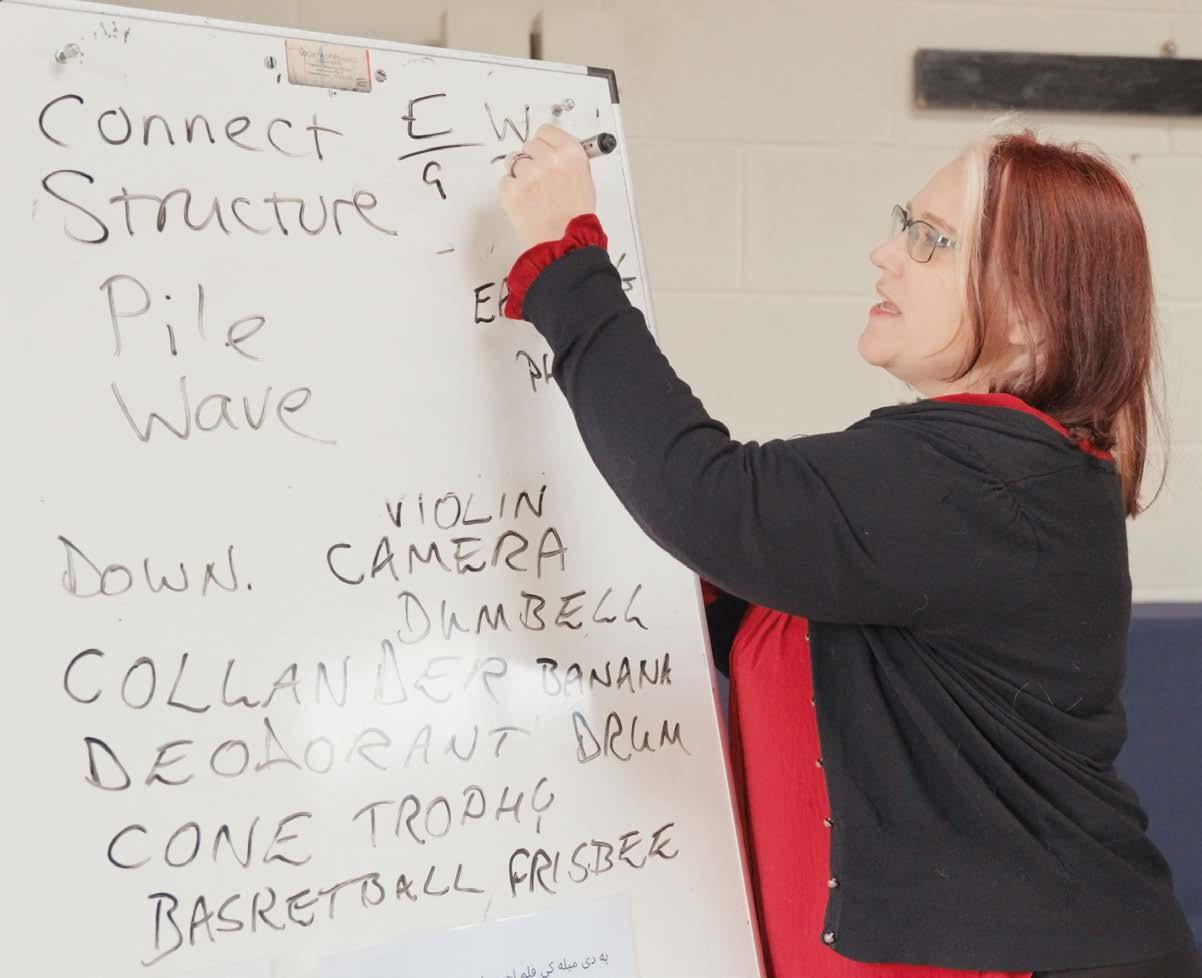 Connect E W
Structure 9
Pile
Wave
VIOLIN
DOWN. CAMERA
DUMBELL
COLLANDER BANANA
DEODORANT DRUM
CONE TROPHY
BASKETBALL, FRISBEE
په دی میله کی قلم